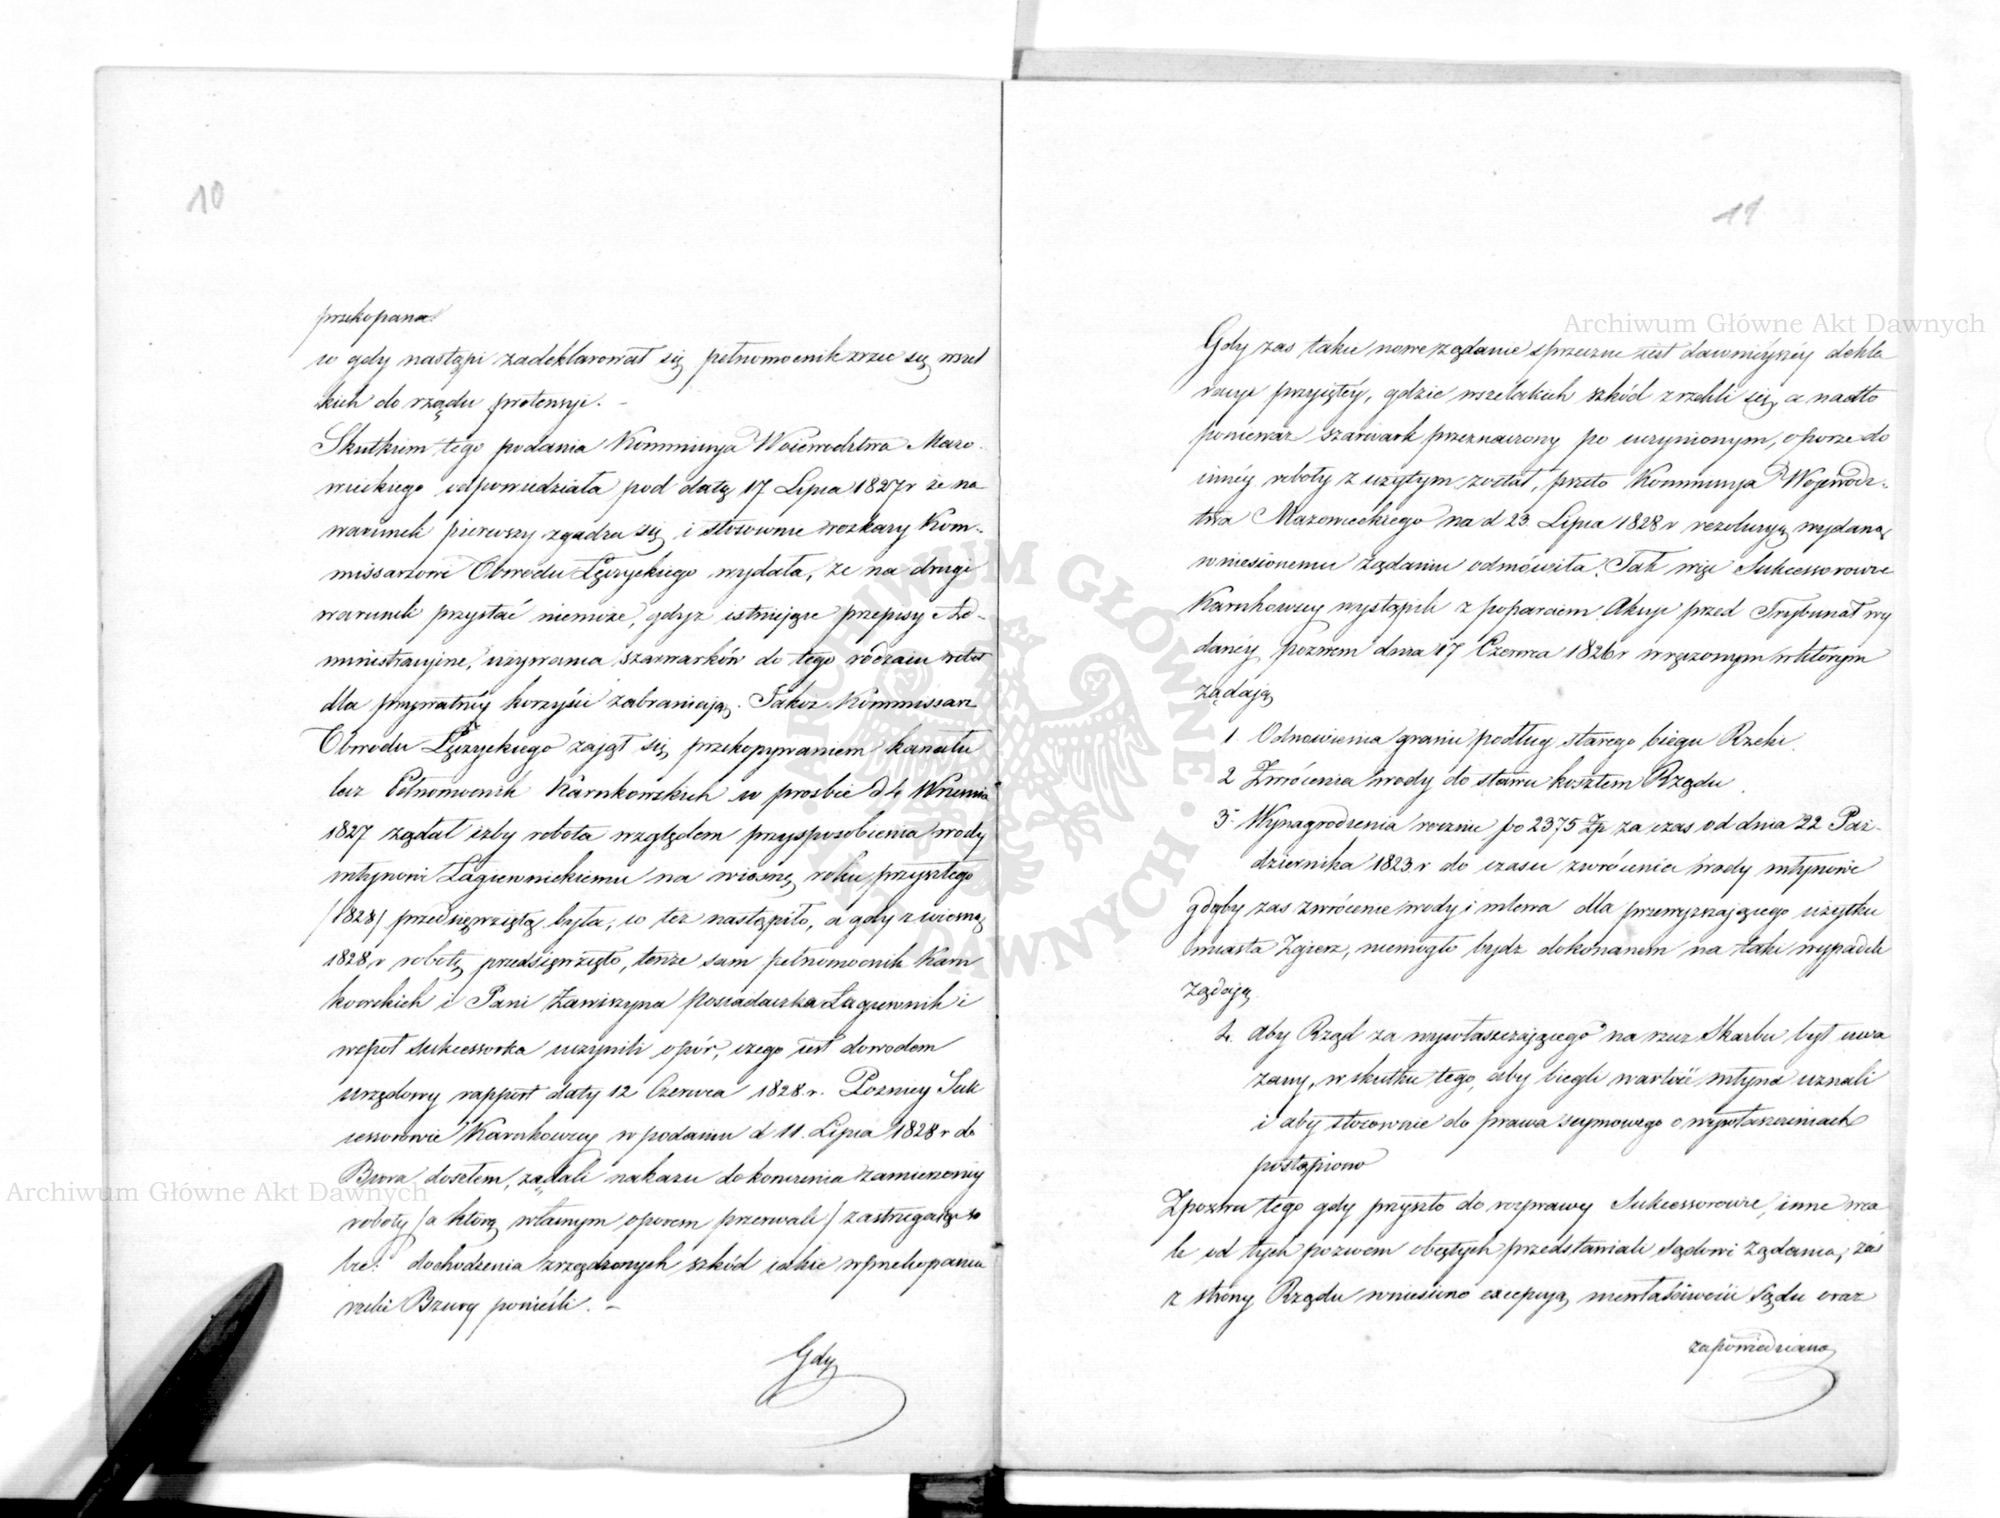 10
przekopana
co gdy nastąpi zadeklarował się pełnomocnik zrzec się wszel
kich do rządu pretensyi. –
Skutkiem tego podania Kommissya Województwa Mazo-
wieckiego odpowiedziała pod datą 17 Lipca 1827 r że na
warunek pierwszy zgadza się i stosowne rozkazy Kom-
missarzowi Obwodu Łęczyckiego wydała, że na drugi
warunek przystać niemoże, gdyż istniejące przepisy Ad-
ministracyjne, używania szarwarków do tego rodzaiu robót
dla prywatnéy korzyści zabraniają. Jakoż Kommissarz
Obwodu Łęczyckiego zajął się przekopywaniem kanału
lecz Pełnomocnik Karnkowskich w prosbie d 4 Września
1827 żądał iżby robota względem przysposobienia wody
młynowi Łagiewnickiemu na wiosnę roku przyszłego
/1828/ przedsięwziętą była; co też nastąpiło, a gdy z wiosną
1828 r robotę przedsięwzięto, tenże sam pełnomocnik Karn
kowskich i Pani Zawiszyna posiadaczka Łagiewnik i
współ sukcessorka uczynili opór, czego iest dowodem
urzędowy rapport daty 12 Czerwca 1828 r. Pozniey Suk
cessorowie Karnkowscy w podaniu d 11. Lipca 1828 r do
Biora doszłem, żądali nakazu dokonczenia zamierzoney
roboty /a którą własnym oporem przerwali/ zastrzegaiąc so
bie: dochodzenia zrządzonych szkód iakie w przekopaniu
rzeki Bzury ponieśli. –
Gdy
11
Archiwum Główne Akt Dawnych
Gdy zas takie nowe żądanie sprzeczne iest dawnieyszéy dekla
racyi przyiętéy, gdzie wszelakich szkód zrzekli się, a nadto
ponieważ szarwark przeznaczony po uczynionym oporze do
innéy roboty z użytym został, przeto Kommissya Wojewódz-
twa Mazowieckiego na d 23. Lipca 1828 r rezolucyą wydaną
wniesionemu żądaniu odmówiła. Tak więc Sukcessorowie
Karnkowscy wystąpili z poparciem Akcyi przed Trybunał wy
danéy pozwem dnia 17 Czerwca 1826 r wręczonym w którym
żądają
1 Odnowienia granic podług starego biegu Rzeki.
2 Zwrócenia wody do stawu kosztem Rządu.
3- Wynagrodzenia rocznie po 2375 Zp za czas od dnia 22 Paź-
dziernika 1823 r do czasu zwrócenia wody młynowi
gdyby zas zwrócenie wody i mlewa dla przewyższającego użytku
miasta Zgierz, niemogło bydz dokonanem na taki wypadek
Żądają
4. aby Rząd za wywłaszczającego na rzecz Skarbu był uwa
żany, w skutku tego, aby biegli wartość młyna uznali
i aby stosownie do prawa seymowego o wywłaszczeniach
postąpiono
Z pozwu tego gdy przyszło do rozprawy Sukcessorowie, inne wca
le od tych pozwem obiętych przedstawiali Sądowi żądania, zaś
z strony Rządu wniesiono excepcyą niewłaściwości Sądu oraz
zapowiedziano
Archiwum Główne Akt Dawnych
ARCHIWUM GŁÓWNE AKT DAWNYCH